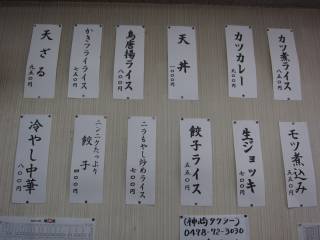 カツ煮ライス
八五〇円
カツカレー
九〇〇円
天丼
一〇〇〇円
鳥唐揚ライス
八〇〇円
かきフライライス
七五〇円
天ざる
九五〇円
モツ煮込み
五五〇円
生ジョッキ
五〇〇円
餃子ライス
七五〇円
ニラもやし炒めライス
七〇〇円
ニンニクたっぷり
餃子
四〇〇円
冷やし中華
八〇〇円
(神崎タクシー)
0478-72-3030